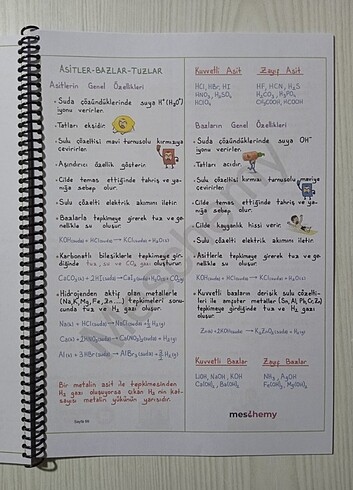 ASİTLER-BAZLAR-TUZLAR
Asitlerin Genel Özellikleri
• Suda çözündüklerinde suya H⁺(H₃O⁺)
iyonu verirler.
• Tatları ekşidir.
• Sulu çözeltisi mavi turnusolu kırmızıya
çevirirler.
• Aşındırıcı özellik gösterir.
• Cilde temas ettiğinde tahriş ve ya-
nığa sebep olur.
• Sulu çözelti elektrik akımını iletir.
• Bazlarla tepkimeye girerek tuz ve ge-
nellikle su oluşur.
KOH(suda) + HCl(suda) → KCl(suda) + H₂O(s)
• Karbonatlı bileşiklerle tepkimeye gir-
diğinde tuz, su ve CO₂ gazı oluşturur.
CaCO₃(k) + 2HI(suda) → CaI₂(suda) + H₂O(s) + CO₂(g)
• Hidrojenden aktif olan metallerle
(Na, K, Mg, Fe, Zn....) tepkimeleri sonu-
cunda tuz ve H₂ gazı oluşur.
Na(k) + HCl(suda) → NaCl(suda) + ½ H₂(g)
Ca(k) + 2HNO₃(suda) → Ca(NO₃)₂(suda) + H₂(g)
Al(k) + 3HBr(suda) → AlBr₃(suda) + 3/2 H₂(g)
Bir metalin asit ile tepkimesinden
H₂ gazı oluşuyorsa çıkan H₂ nin kat-
sayısı metalin yükünün yarısıdır.
Kuvvetli Asit Zayıf Asit
HCl, HBr, HI HF, HCN, H₂S
HNO₃, H₂SO₄ H₂CO₃, H₃PO₄
HClO₄ CH₃COOH, HCOOH
Bazların Genel Özellikleri
• Suda çözündüklerinde suya OH⁻
iyonu verirler.
• Tatları acıdır.
• Sulu çözeltisi kırmızı turnusolu maviye
çevirirler.
• Cilde temas ettiğinde tahriş ve ya-
nığa sebep olur.
• Cilde kayganlık hissi verir.
• Sulu çözelti elektrik akımını iletir.
• Asitlerle tepkimeye girerek tuz ve ge-
nellikle su oluşur.
KOH(suda) + HCl(suda) → KCl(suda) + H₂O(s)
• Kuvvetli bazların derişik sulu çözelti-
leri ile amfoter metaller (Sn, Al, Pb, Cr, Zn)
tepkimeye girdiğinde tuz ve H₂ gazı
oluşur.
Zn(k) + 2KOH(suda) → K₂ZnO₂(suda) + H₂(g)
Kuvvetli Bazlar Zayıf Bazlar
LiOH, NaOH, KOH NH₃, AgOH
Ca(OH)₂, Ba(OH)₂ Fe(OH)₃, Mg(OH)₂
meschemy